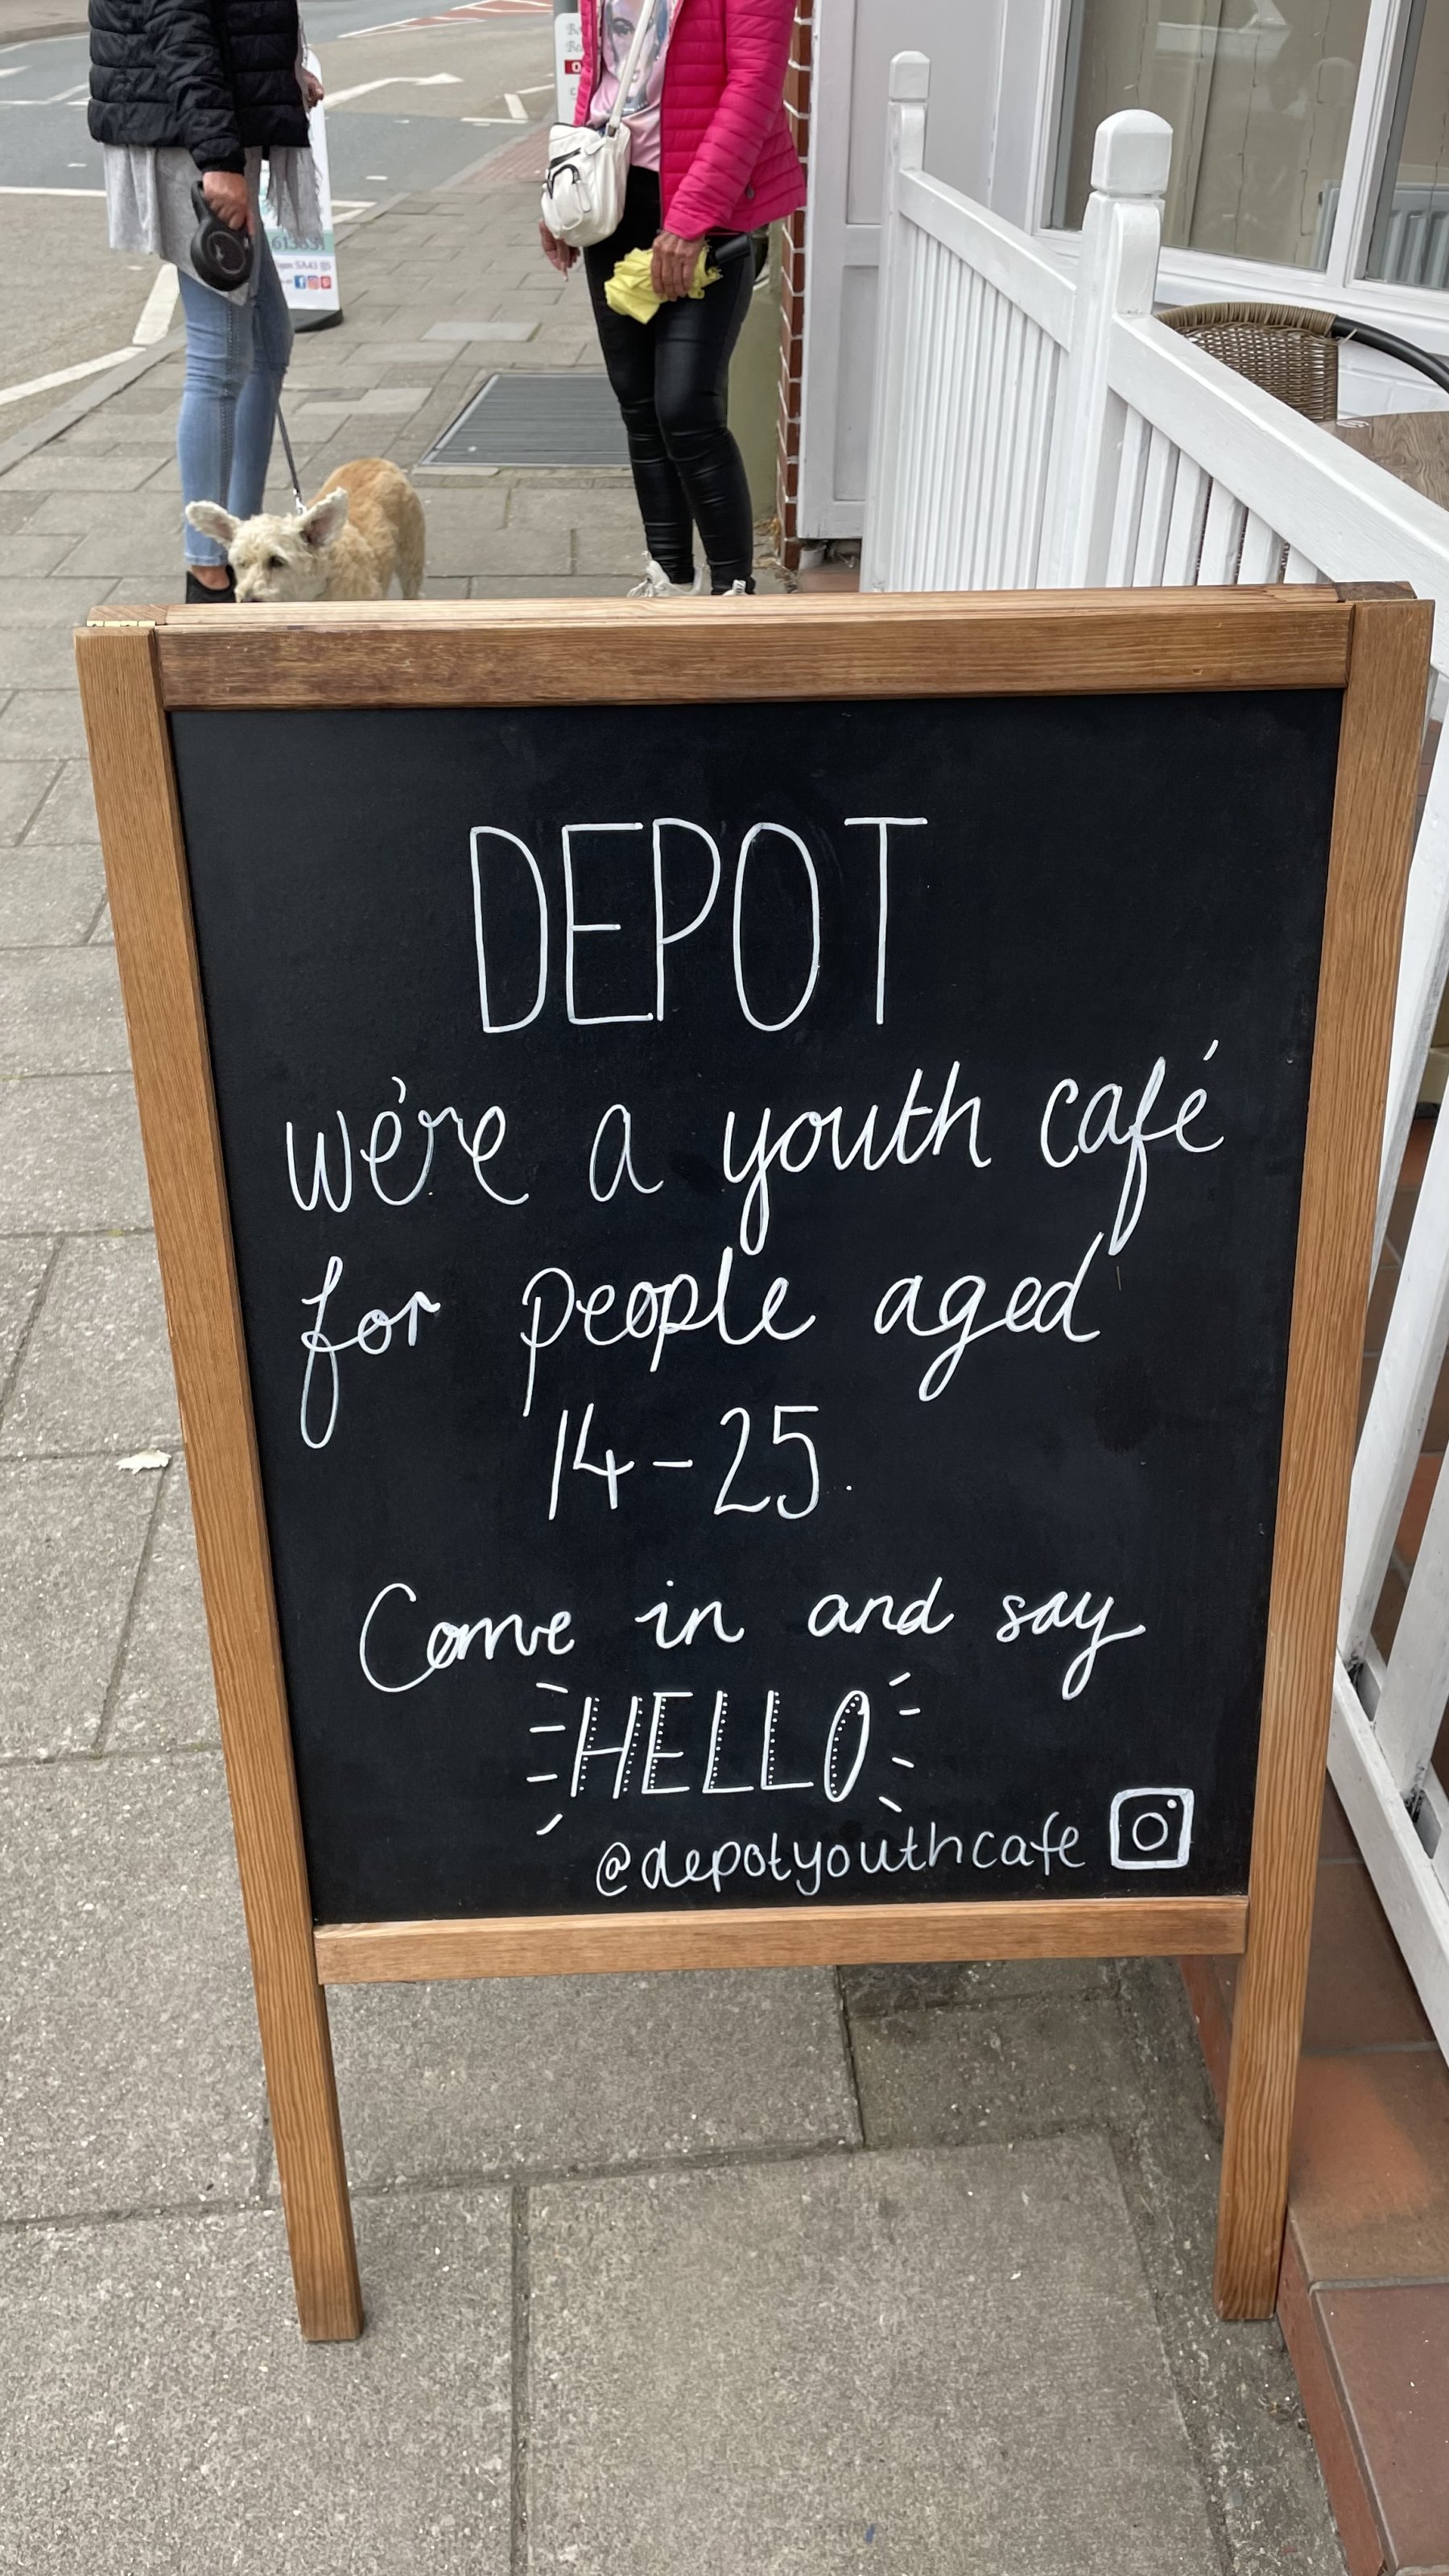 613631
SA43
DEPOT
we're a youth café
for people aged
14-25.
Come in and say
HELLO
@depotyouthcafe